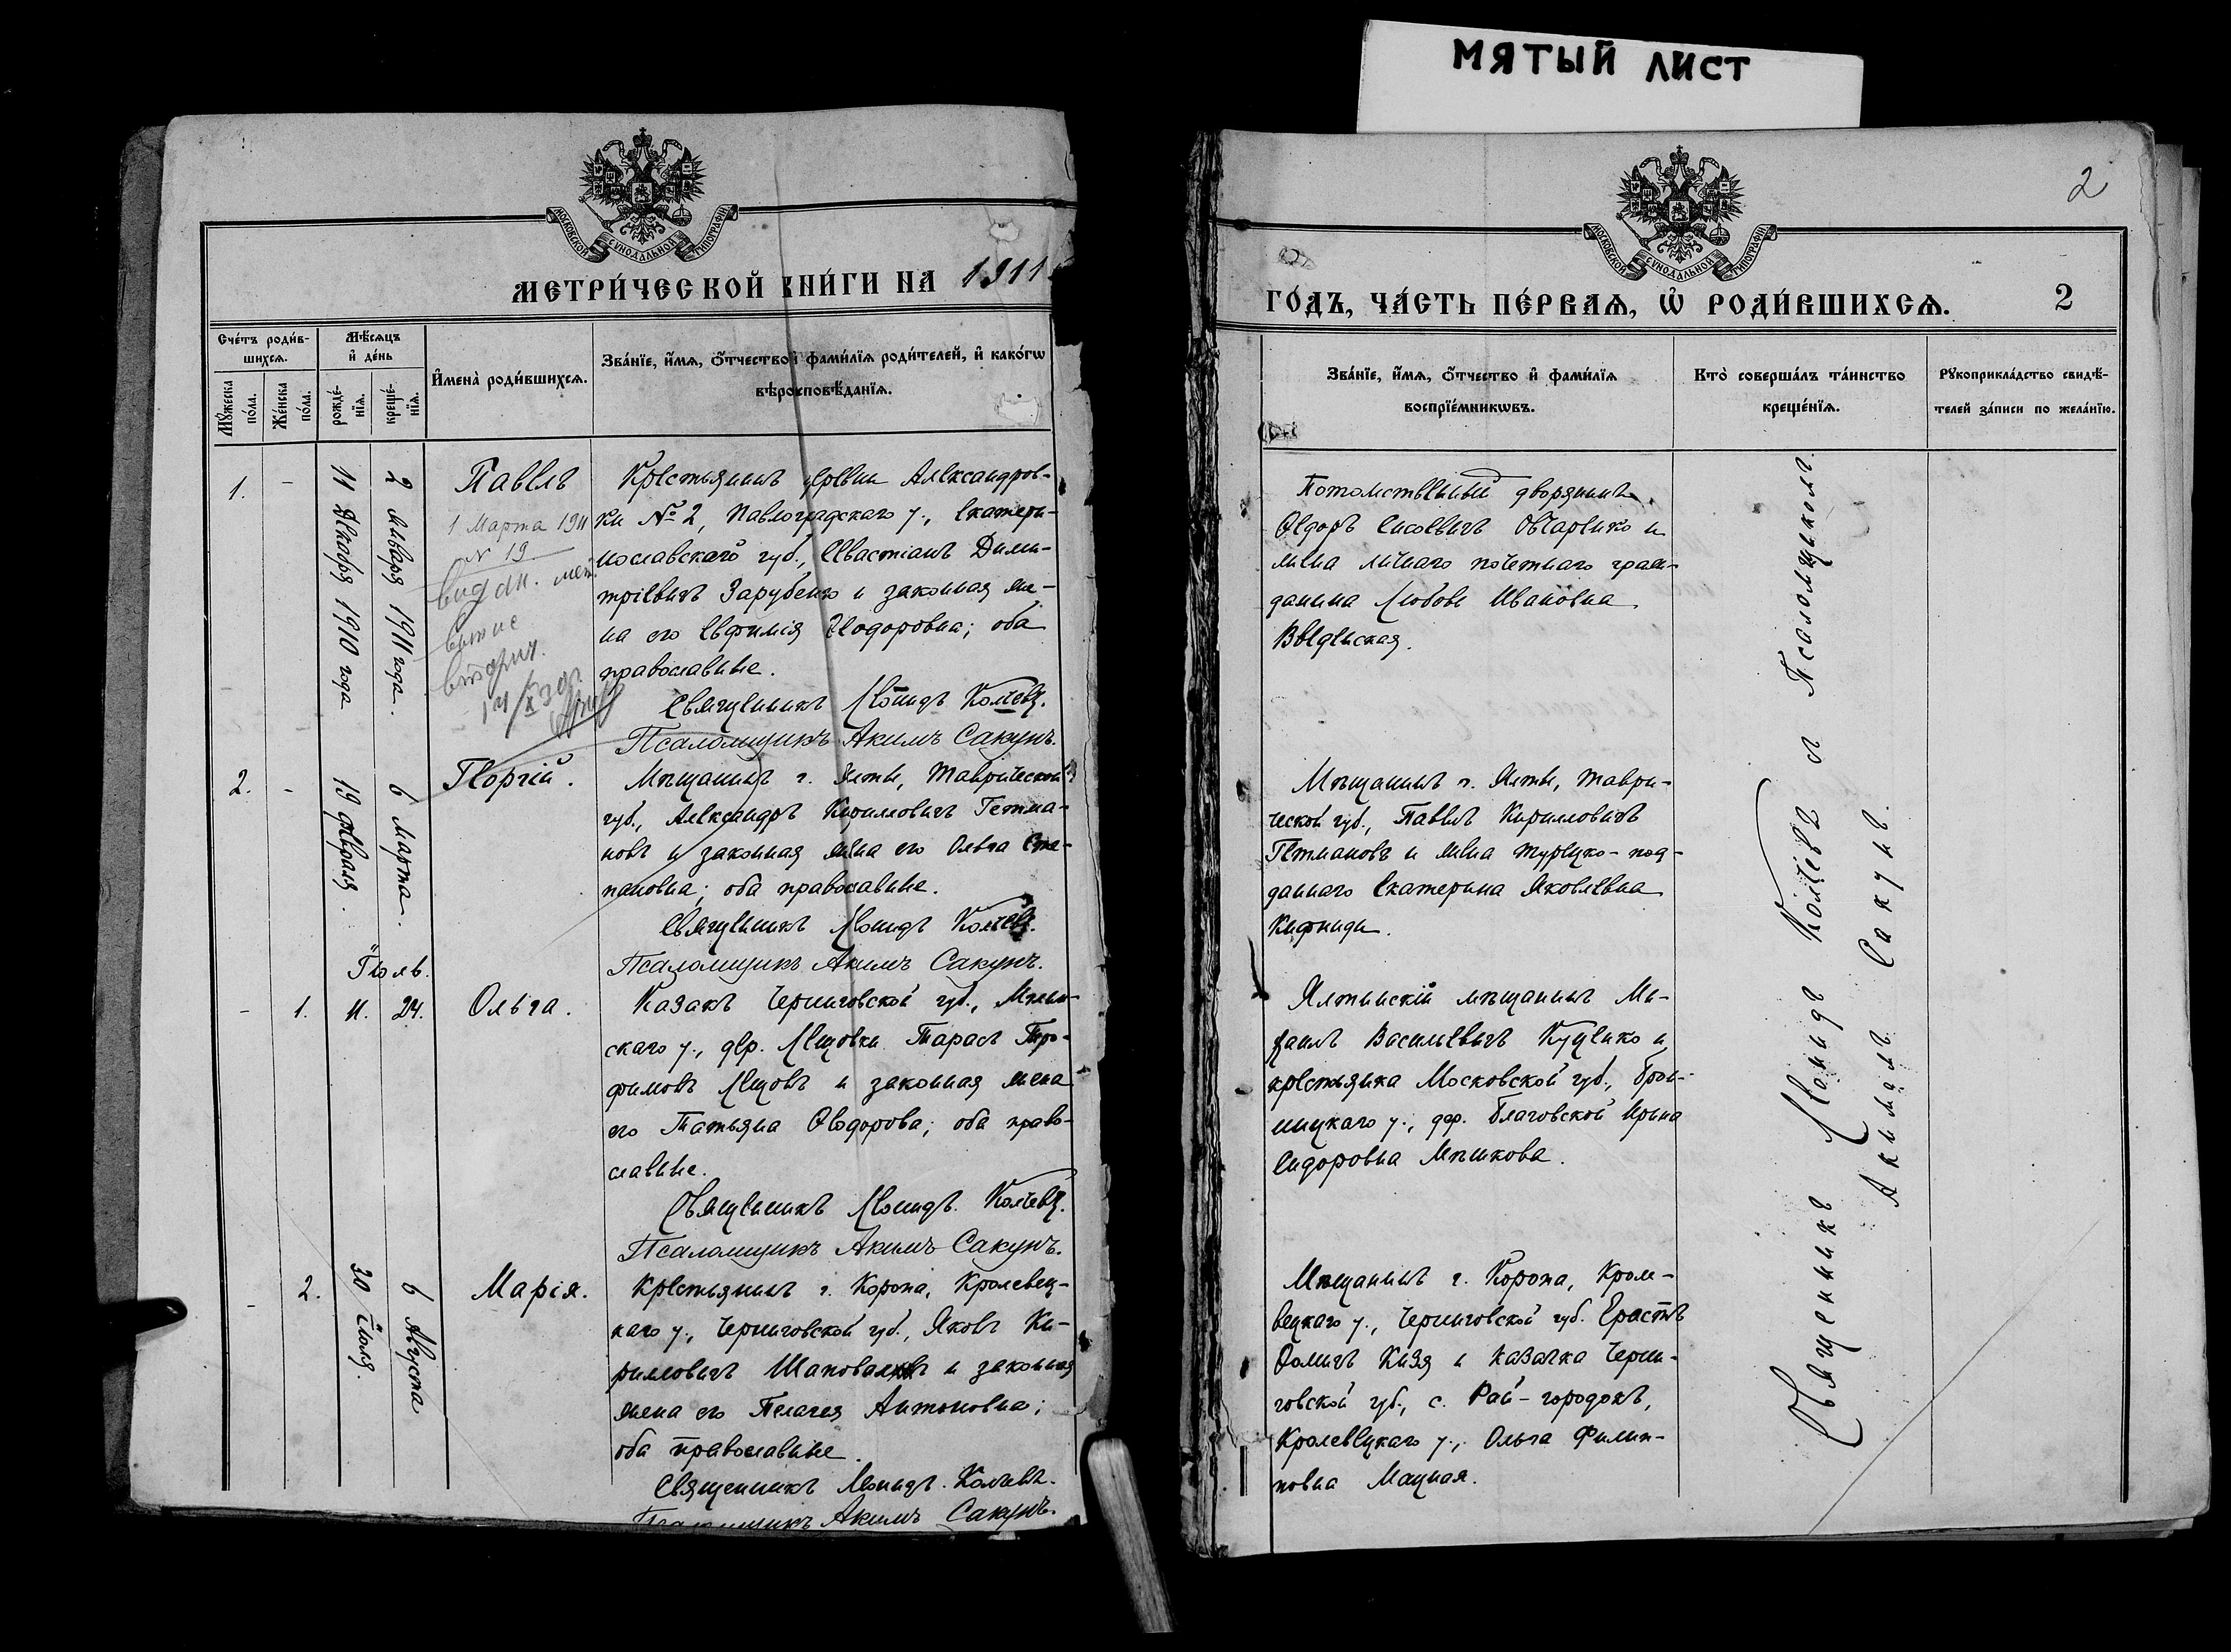 МЯТЫЙ ЛИСТ
2
МОСКОВСКОЙ СѴНОДАЛЬНОЙ ТИПОГРАФІИ
МЕТРИ́ЧЕСКОЙ КНИ́ГИ НА 1911
Сче́тъ роди́в-
шихсѧ.
Мѣ́сѧцъ
и҆ де́нь
Мꙋ́жеска
по́ла.
Же́нска
по́ла.
рожде́-
нїѧ.
креще́-
нїѧ.
И҆мена̀ роди́вшихсѧ.
Зва́нїе, и҆́мѧ, ѻ҆́тчество и҆ фами́лїѧ роди́телей, и҆ како́гѡ
вѣроисповѣ́данїѧ.
1.
-
11 Декабря 1910 года
2 Января 1911 года.
Павелъ
1 Марта 1911
N 19
выдан. мет.
Крестьянинъ деревни Александров-
ки № 2, Павлоградскаго у., Екатери-
нославскаго губ., Севастіанъ Дими-
тріевичъ Зарубенко и законная же-
на его Евфимія Ѳеодоровна; оба
православные.
Священникъ Леонидъ Колчевъ.
Псаломщикъ Акимъ Сакунъ.
2.
-
19 Февраля.
6 Марта.
Георгій.
Мѣщанинъ г. Ялты, Таврической
губ., Александръ Кирилловичъ Гетма-
новъ и законная жена его Ольга Сте-
пановна; оба православные.
Священникъ Леонидъ Колчевъ.
Псаломщикъ Акимъ Сакунъ.
Іюль.
-
1.
11.
24.
Ольга.
Казакъ Черниговской губ., Мглин-
скаго у., дер. Лещовки Тарасъ Тро-
фимовъ Лещовъ и законная жена
его Татьяна Ѳеодорова; оба право-
славные.
Священникъ Леонидъ Колчевъ.
Псаломщикъ Акимъ Сакунъ.
-
2.
30 Іюля.
6 Августа
Марія.
Крестьянинъ г. Коропа, Кролевец-
каго у., Черниговской губ., Яковъ Ки-
рилловичъ и законная
жена его Пелагея Антоновна;
оба православные.
Священникъ Леонидъ Колчевъ.
Псаломщикъ Акимъ Сакунъ.
2
МОСКОВСКОЙ СѴНОДАЛЬНОЙ ТИПОГРАФІИ
ГО́ДЪ, ЧА́СТЬ ПЕ́РВАѦ, Ѡ҆ РОДИ́ВШИХСѦ. 2
Зва́нїе, и҆́мѧ, ѻ҆́тчество и҆ фами́лїѧ
воспрїе́мникѡвъ.
Кто̀ соверша́лъ та́инство
креще́нїѧ.
Рꙋкоприкла́дство свидѣ́-
телей за́писи по жела́нїю.
Потомственный дворянинъ
Ѳедоръ Сисоевичъ Овчаренко и
жена личнаго почетнаго граж-
данина Любовь Ивановна
Введенская.
Мѣщанинъ г. Ялты, Таври-
ческой губ., Павелъ Кирилловичъ
Гетмановъ и жена турецко-под-
даннаго Екатерина Яковлевна
Кифниди.
Ялтинскій мѣщанинъ Ми-
хаилъ Васильевичъ Куценко и
крестьянка Московской губ., Брон-
ницкаго у., дер. Благовской Ирина
Сидоровна Мѣшкова.
Мѣщанинъ г. Коропа, Кроле-
вецкаго у., Черниговской губ. Ерастъ
Ѳомичъ Кизя и казачка Черни-
говской губ., с. Рай-городокъ,
Кролевецкаго у., Ольга Филип-
повна Мацная.
Священникъ Леонидъ Колчевъ съ Псаломщикомъ
Акимомъ Сакунъ.